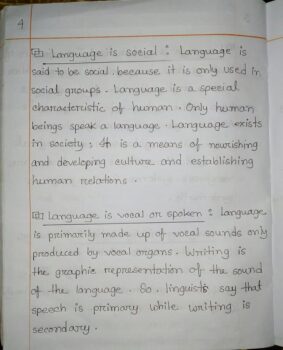 4
Language is social : Language is
said to be social. because it is only used in
social groups. Language is a special
characteristic of human. Only human
beings speak a language. Language exists
in society; It is a means of nourishing
and developing culture and establishing
human relations.
Language is vocal or spoken : Language
is primarily made up of vocal sounds only
produced by vocal organs. Writing is
the graphic representation of the sound
of the language. So, linguists say that
speech is primary while writing is
secondary.